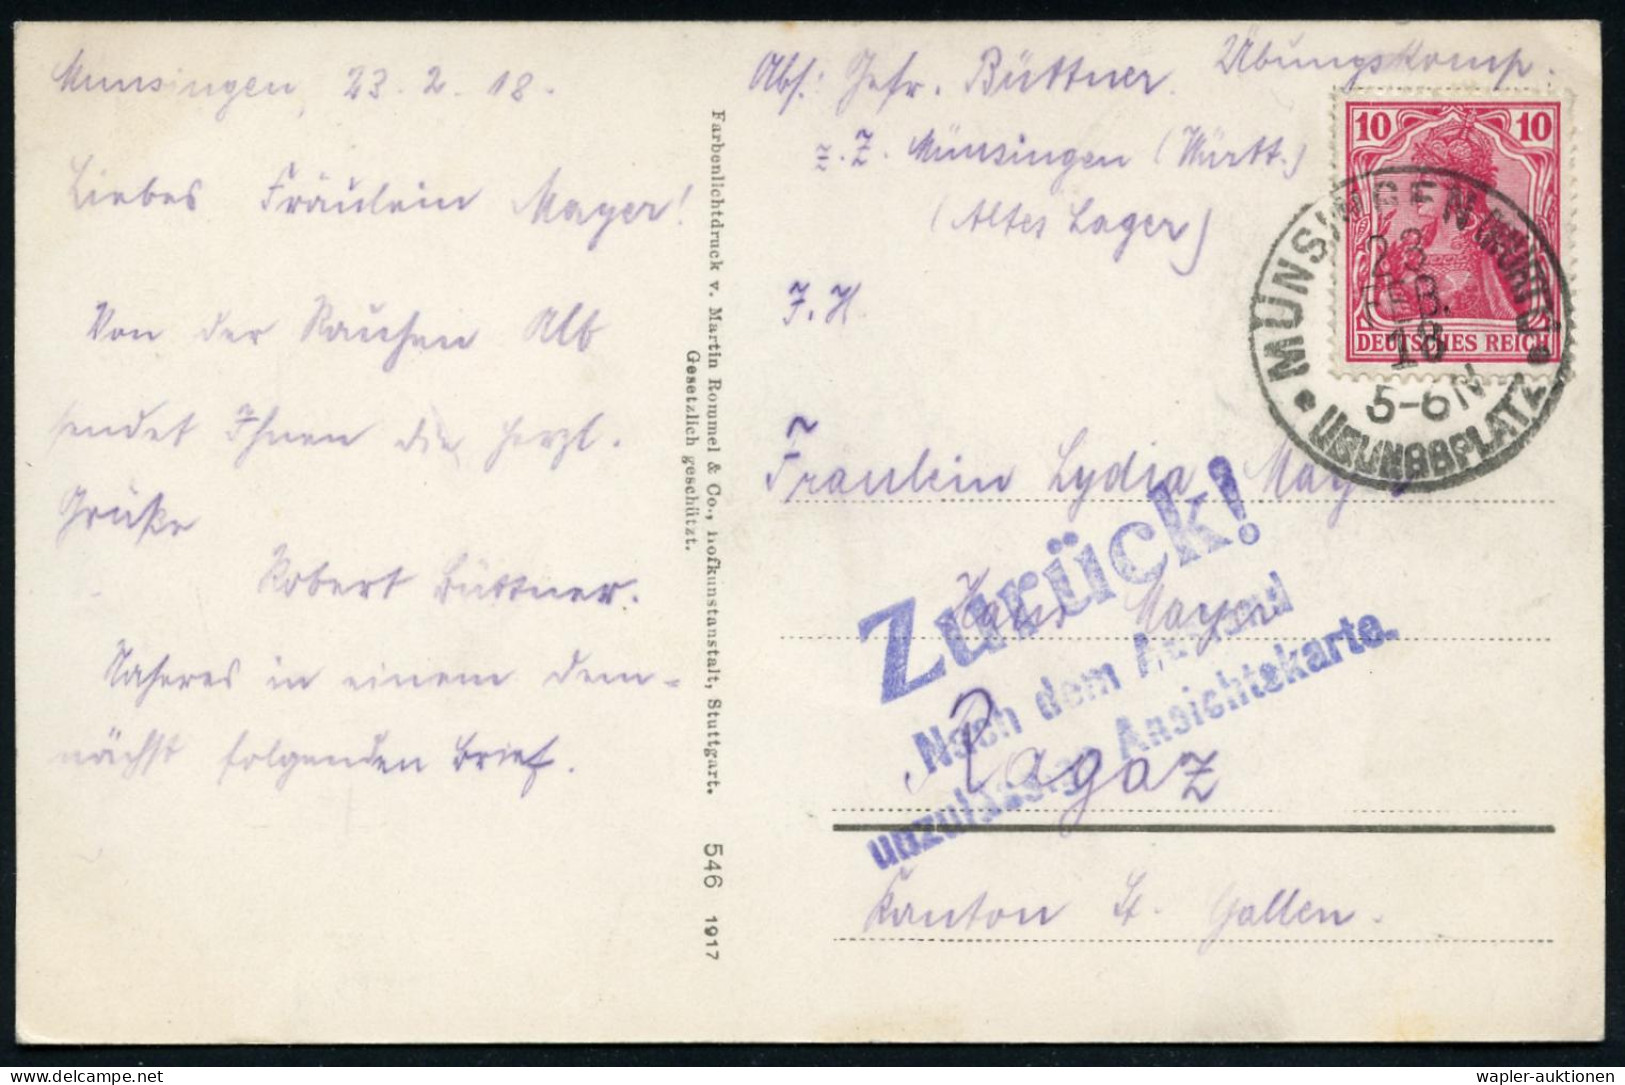 Münsingen, 23.2.18.
Liebes Fräulein Mayer!
Von der Rauhen Alb
sendet Ihnen die herzl.
Grüße
Robert Büttner.
Näheres in einem dem-
nächst folgenden Brief.
Farbenlichtdruck v. Martin Rommel & Co., Hofkunstanstalt, Stuttgart. 546 1917
Gesetzlich geschützt.
Abs: Gefr. Büttner. Übungskomp.
z. Z. Münsingen (Württ.)
(Altes Lager)
10 10
DEUTSCHES REICH
MÜNSINGEN (WÜRTT.)
23
FEB.
18
5-6N
ÜBUNGSPLATZ
Fräulein Lydia Mayer
Haus Mayer
Ragaz
Kanton St. Gallen.
Zurück!
Nach dem Ausland
unzulässige Ansichtskarte.
delcampe.net
wapler-auktionen